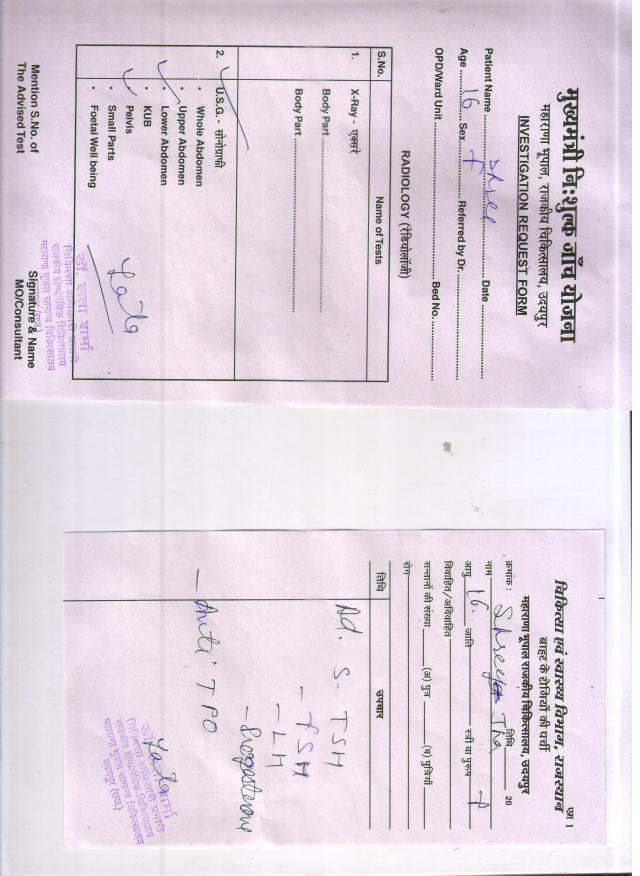 मुख्यमंत्री निःशुल्क जाँच योजना
महाराणा भूपाल, राजकीय चिकित्सालय, उदयपुर
INVESTIGATION REQUEST FORM
Patient Name Date
Age 16 Sex F Referred by Dr.
OPD/Ward Unit Bed No.
RADIOLOGY (रेडियोलॉजी)
S.No. Name of Tests
1. X-Ray - एक्सरे
Body Part
Body Part
2. U.S.G.- सोनोग्राफी
• Whole Abdomen
• Upper Abdomen
• Lower Abdomen
• KUB
• Pelvis
• Small Parts
• Foetal Well being
Lata
डॉ. लता शर्मा
चिकित्सा अधिकारी प्रभारी
Mention S.No. of
The Advised Test
Signature & Name
MO/Consultant
एम 1
चिकित्सा एवं स्वास्थ्य विभाग, राजस्थान
बाहर के रोगियों की पर्ची
महाराणा भूपाल राजकीय चिकित्सालय, उदयपुर
क्रमांक : तिथि 20
नाम Shreya Jha
आयु 16. जाति स्त्री या पुरुष
विवाहित/अविवाहित
सन्तानों की संख्या (अ) पुत्र (ब) पुत्रियाँ
रोग
तिथि उपचार
Ad. S. TSH
- FSH
- LH
- Anti TPO
चिकित्सा अधिकारी प्रभारी
उदयपुर (राज.)